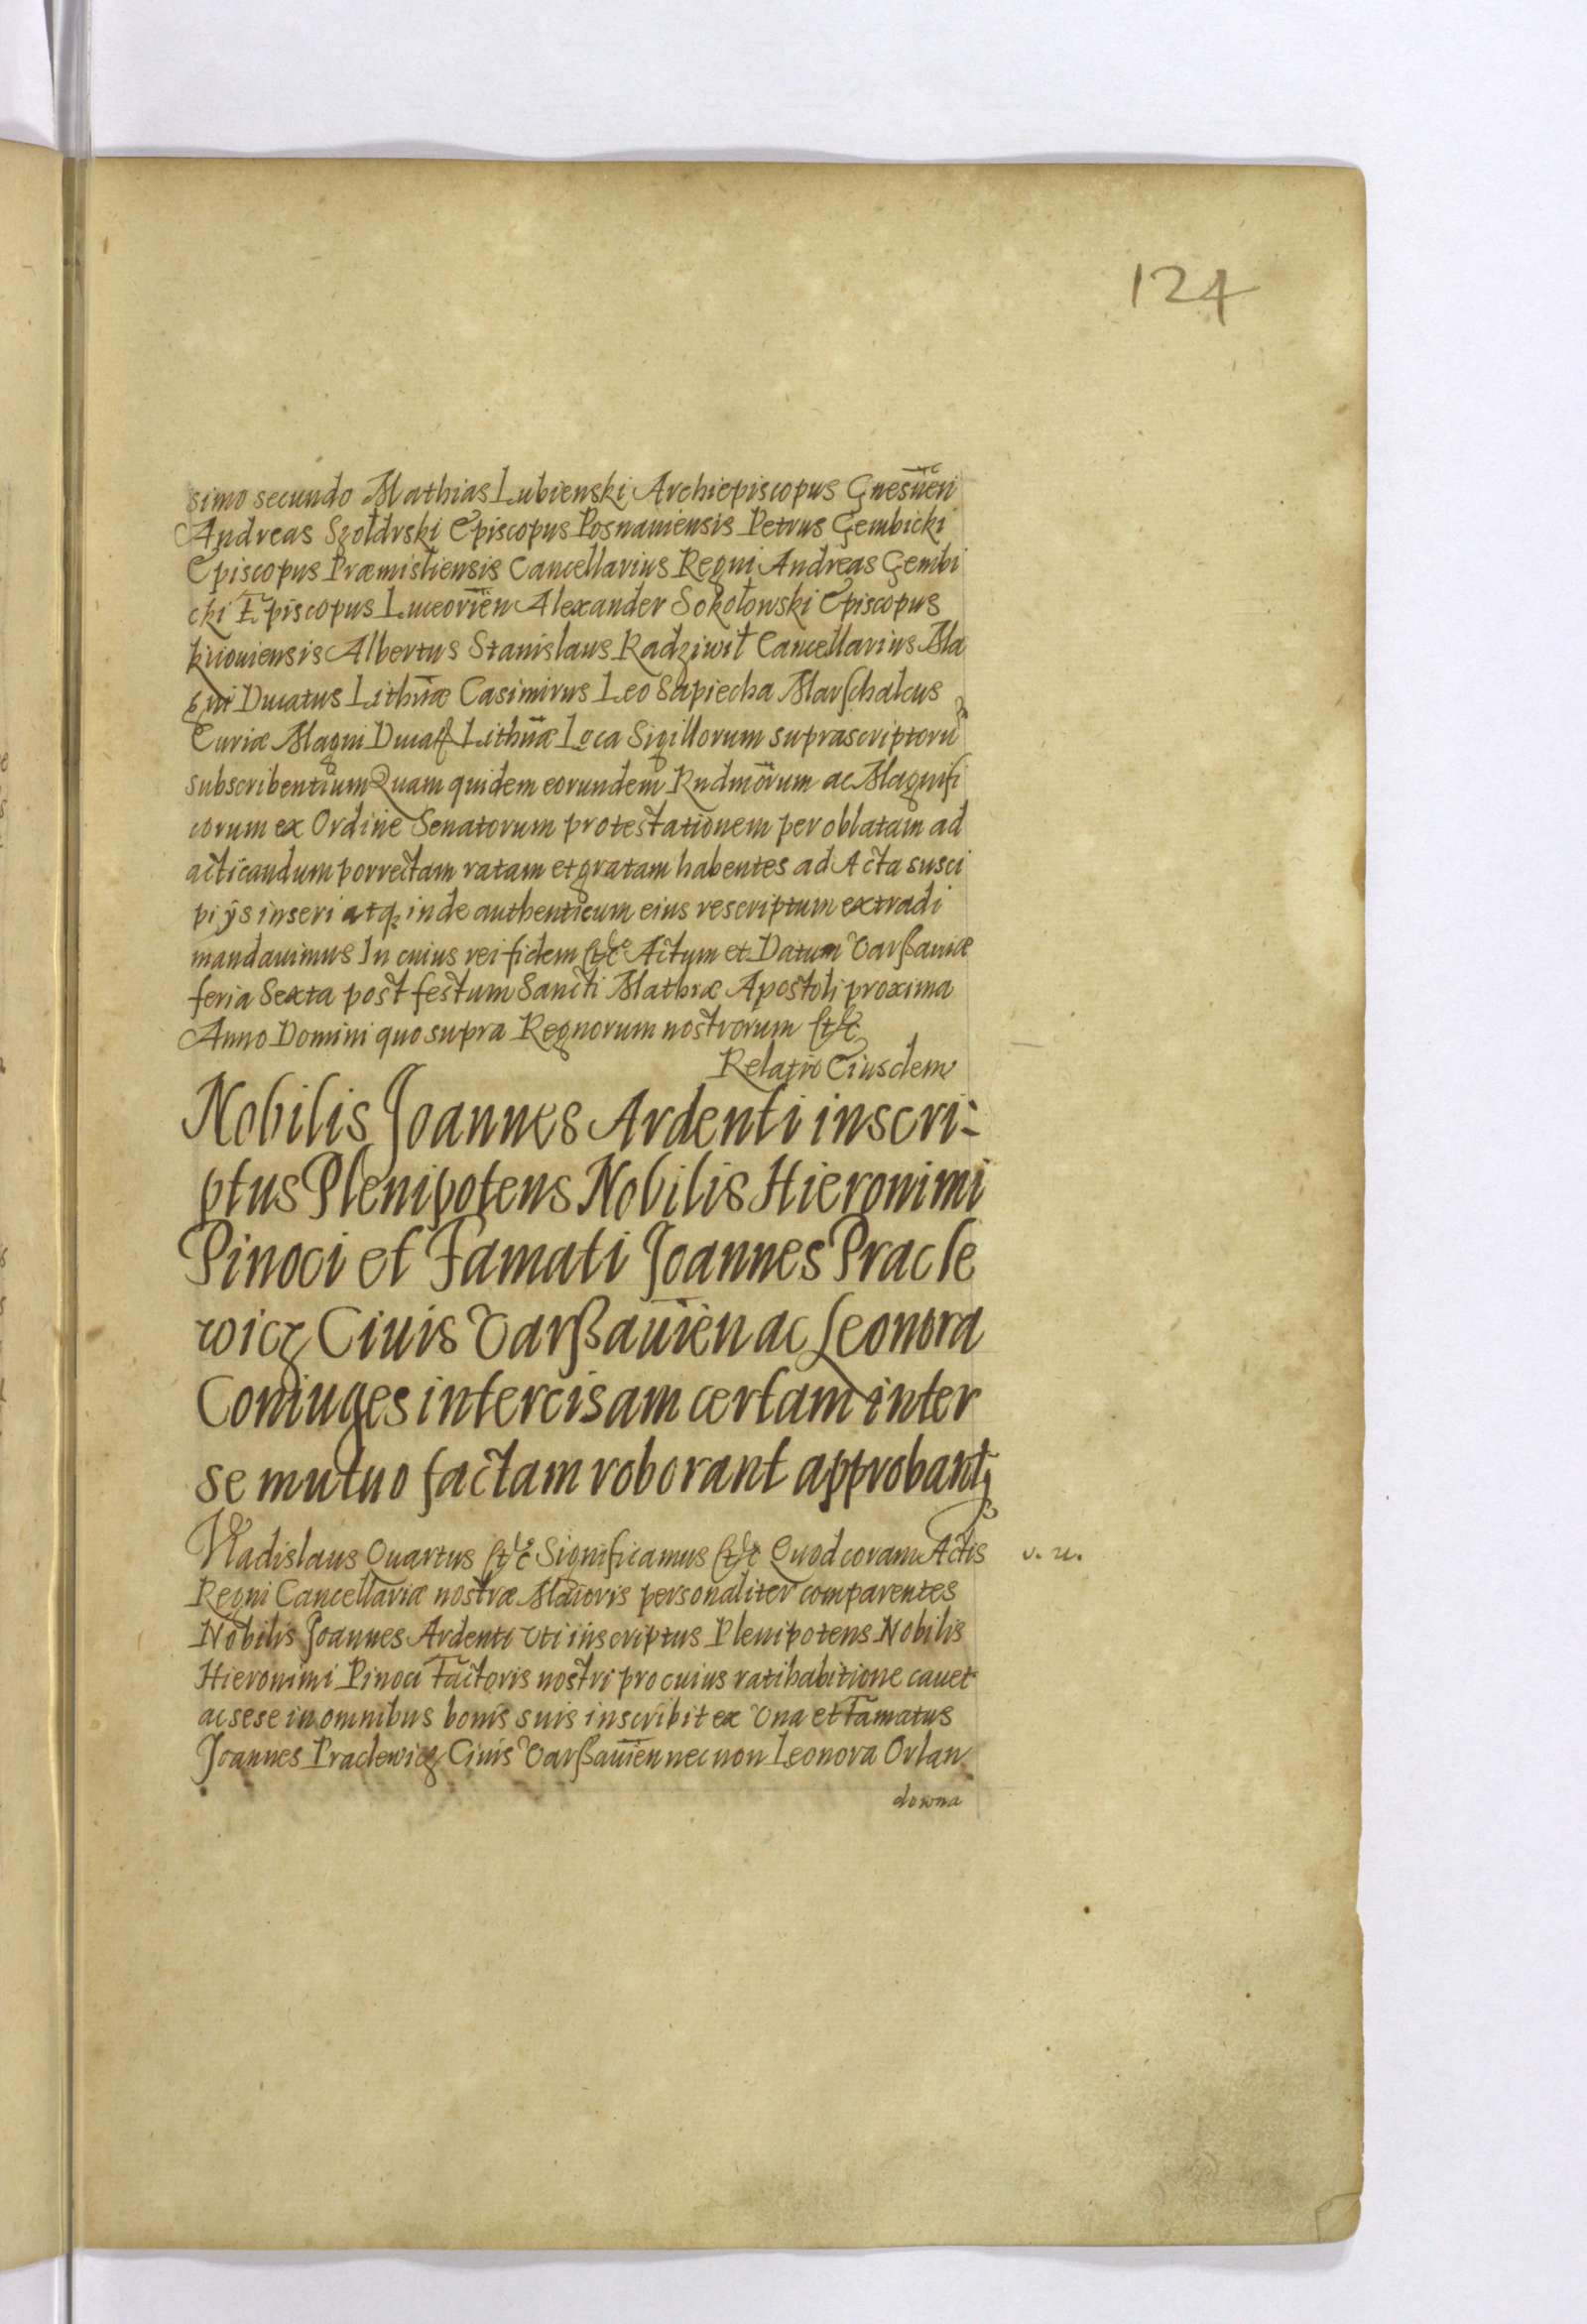 124
simo secundo Mathias Lubienski Archiepiscopus Gnesnen̄
Andreas Szołdrski Episcopus Posnaniensis Petrus Gembicki
Episcopus Præmisliensis Cancellarius Regni Andreas Gembi
cki Episcopus Luceorien̄ Alexander Sokołowski Episcopus
Kiiouiensis Albertus Stanislaus Radziwił Cancellarius Ma
gni Ducatus Lithūæ Casimirus Leo Sapiecha Marschalcus
Curiæ Magni Ducat Lithūæ Loca Sigillorum suprascriptorū
subscribentium Quam quidem eorundem Rndmōrum ac Magnifi
corum ex Ordine Senatorum protestationem per oblatam ad
acticandum porrectam ratam et gratam habentes ad Acta susci
pi ÿs inseri atq; inde authenticum eius rescriptum extradi
mandauimus In cuius rei fidem &c Actum et Datum Varßauiæ
feria Sexta post festum Sancti Mathiæ Apostoli proxima
Anno Domini quo supra Regnorum nostrorum &c
Relatio Eiusdem
Nobilis Joannes Ardenti inscri-
ptus Plenipotens Nobilis Hieronimi
Pinoci et Famati Joannes Pracle
wicz Ciuis Varßauien̄ ac Leonora
Coniuges intercisam certam inter
se mutuo factam roborant approbantq;
Vladislaus Quartus &c Significamus &c Quod coram Actis v. u.
Regni Cancellariæ nostræ Maioris personaliter comparentes
Nobilis Joannes Ardenti Vti inscriptus Plenipotens Nobilis
Hieronimi Pinoci Factoris nostri pro cuius ratihabitione cauet
ac sese in omnibus bonis suis inscribit ex Vna et Famatus
Joannes Praclewicz Ciuis Varßauien̄ nec non Leonora Orlan
downa